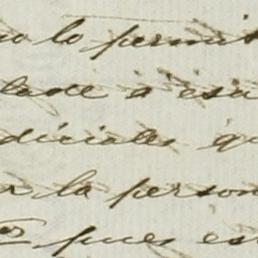 no lo permit
dade á esa
diciales qu
r la person
pues es